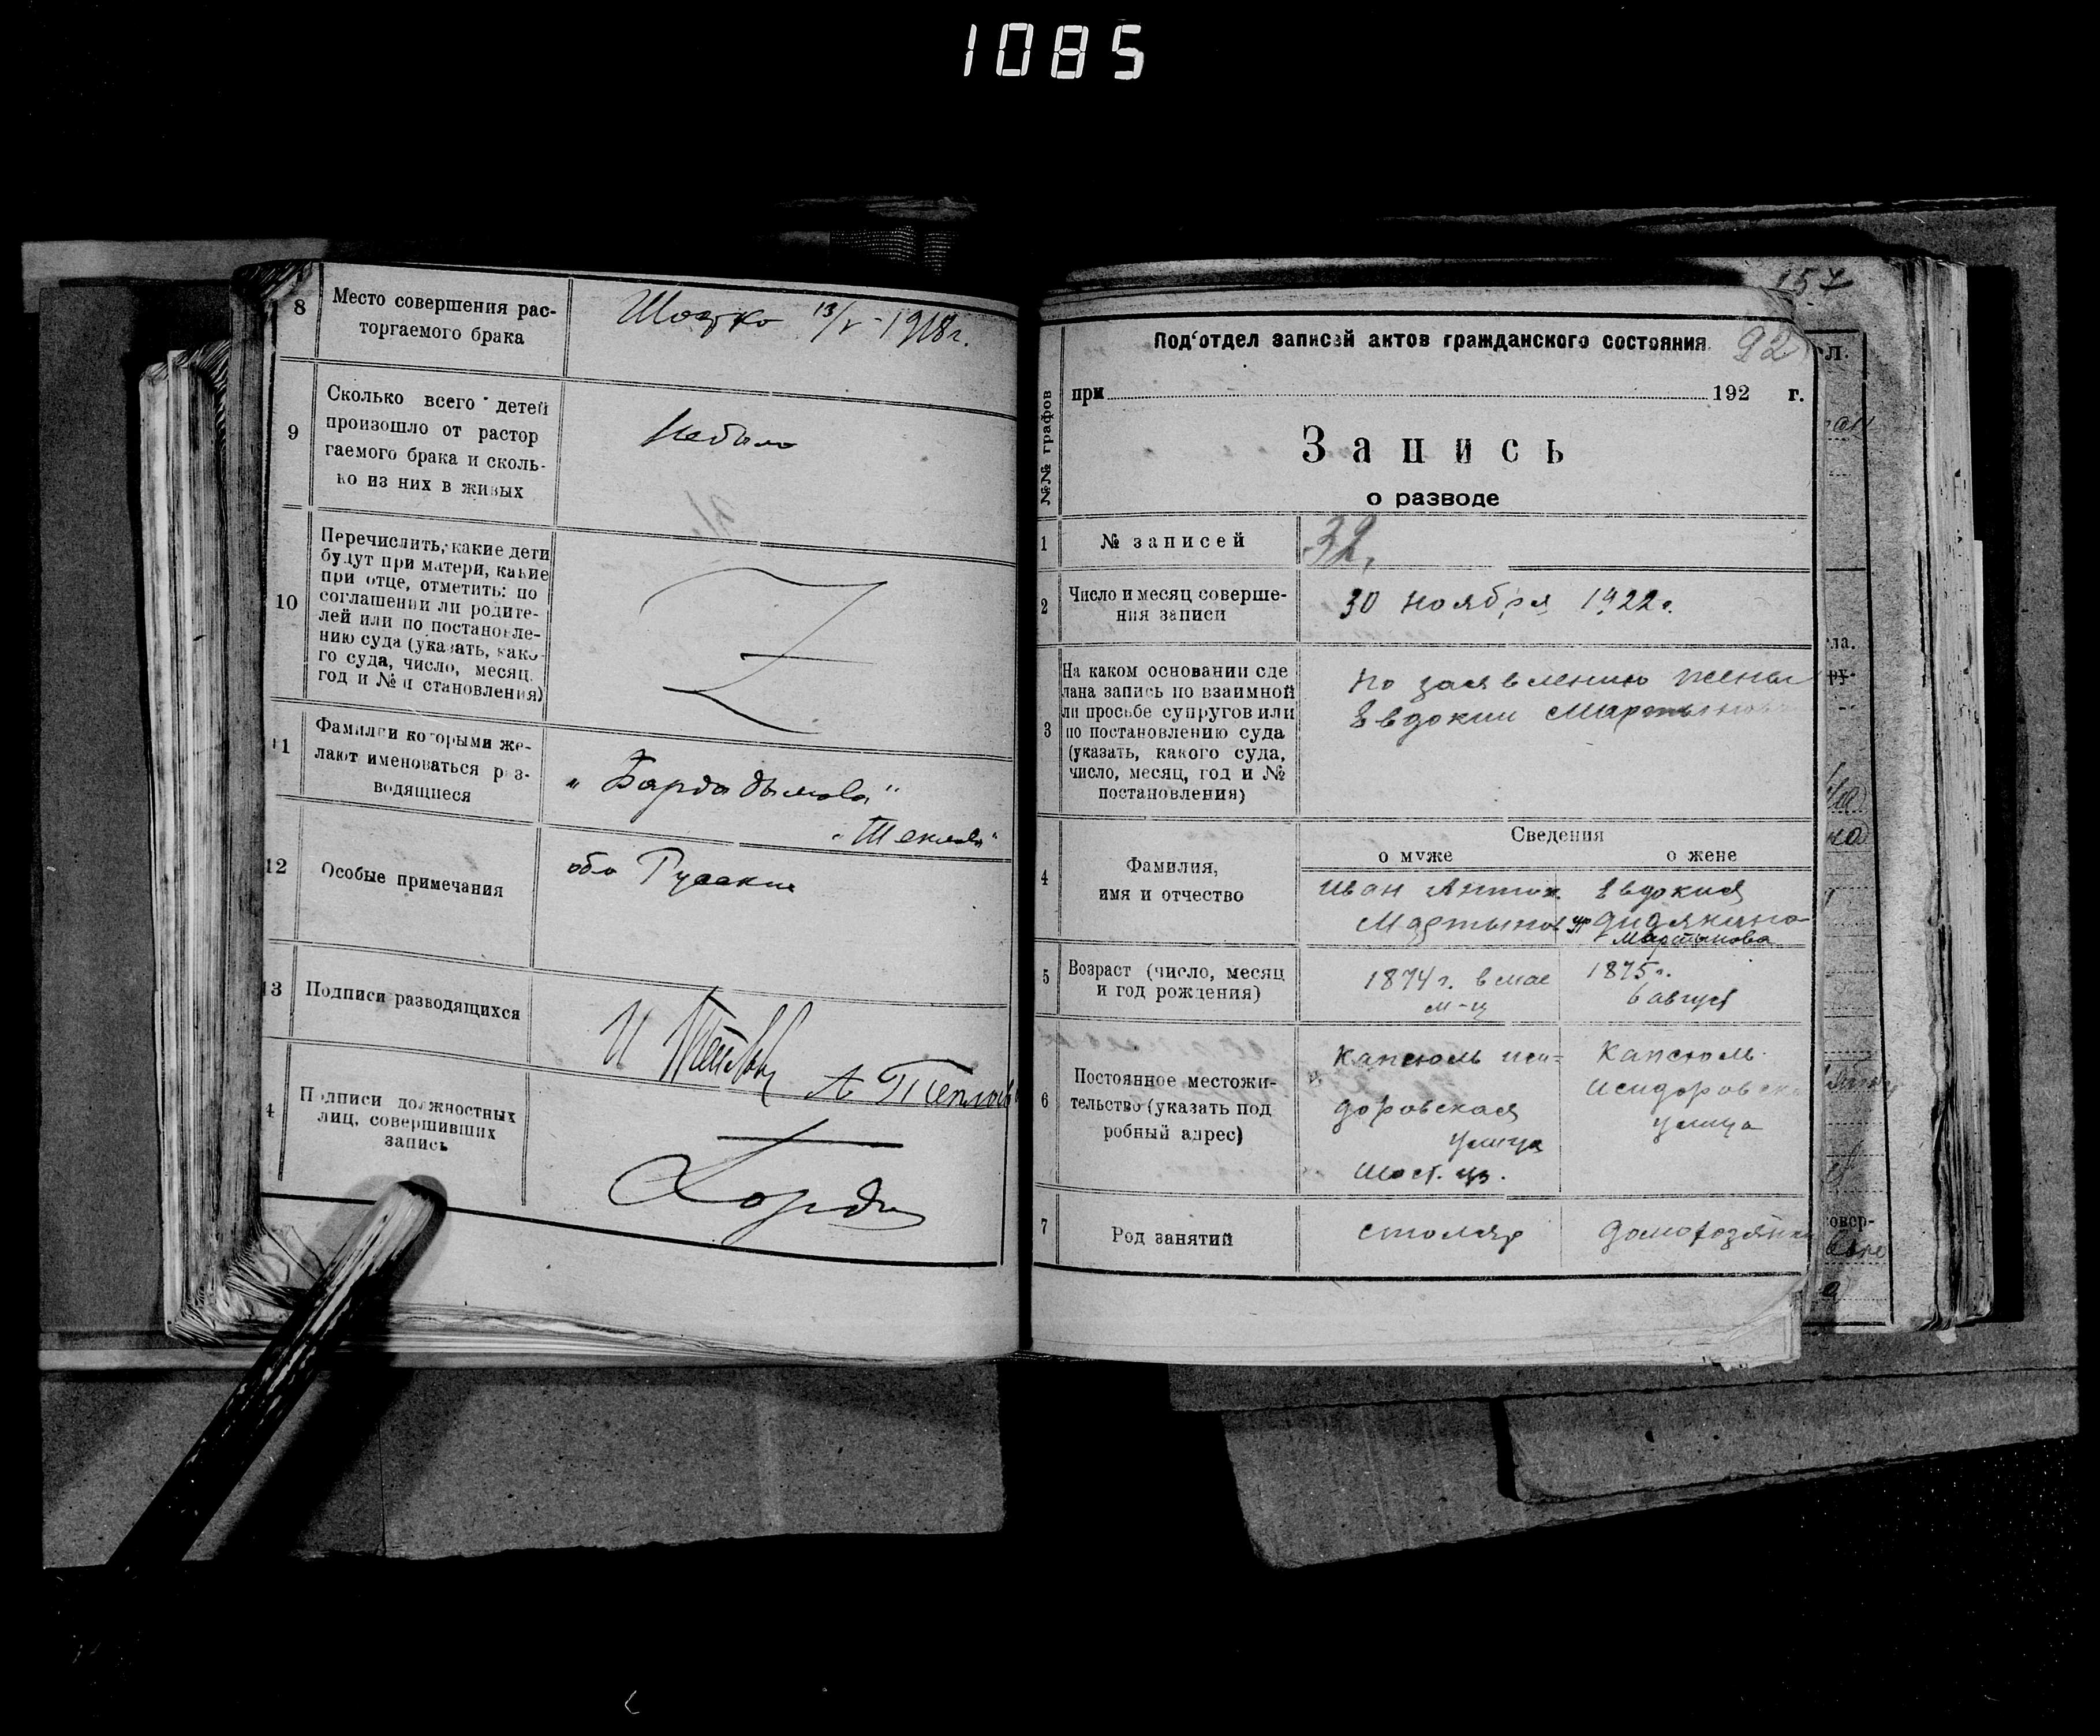 1085
8
Место совершения рас-
торгаемого брака
13/V - 1918 г.
9
Сколько всего детей
произошло от растор
гаемого брака и сколь-
ко из них в живых
Небыло
10
Перечислить, какие дети
будут при матери, какие
при отце, отметить: по
соглашении ли родите-
лей или по постановле-
нию суда (указать, како-
го суда, число, месяц,
год и № п становления)
11
Фамилии которыми же-
лают именоваться раз-
водящиеся
12
Особые примечания
оба Русские
13
Подписи разводящихся
4
Подписи должностных
лиц, совершивших
запись
157
92
Под‘отдел записей актов гражданского состояния
при 192 г.
№№ графов
Запись
о разводе
1
№ записей
32,
2
Число и месяц соверше-
ния записи
30 ноября 1922 г.
3
На каком основании сде
лана запись по взаимной
ли просьбе супругов или
по постановлению суда
(указать, какого суда,
число, месяц, год и №
постановления)
по заявлению жены
Евдокии Мартыновой
Сведения
о муже
о жене
4
Фамилия,
имя и отчество
Иван Антон.
Мартынов
Евдокия
Мартынова
5
Возраст (число, месяц
и год рождения)
1874 г. в мае
м-ц
1875 г.
6 август
6
Постоянное местожи-
тельство (указать под
робный адрес)
Капсюль иси=
доровская
улица
Капсюль
Исидоровск
улица
7
Род занятий
столяр
домохозяйка